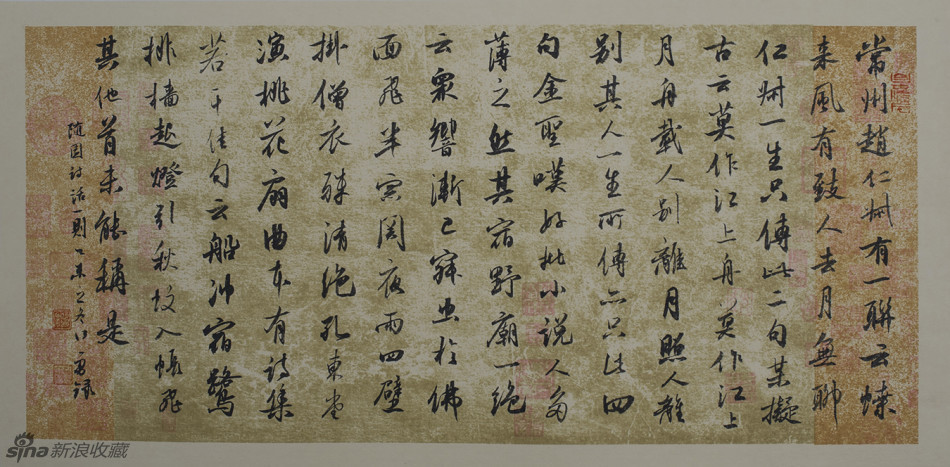 常州趙仁叔有一聯云蝶
来風有致人去月無聊
仁叔一生只傳此二句某擬
古云莫作江上舟莫作江上
月舟載人別離月照人離
別其人一生所傳亦只此四
句金聖嘆好批小説人多
薄之然其宿野廟一絶
云衆響漸已寂虫於佛
面飛半窗関夜雨四壁
掛僧衣殊清絶孔東堂
演桃花扇曲本有詩集
若干佳句云船冲宿鷺
排檣起燈引秋蚊入帳飛
其他首未能稱是
随园詩話一則乙未
sina新浪收藏